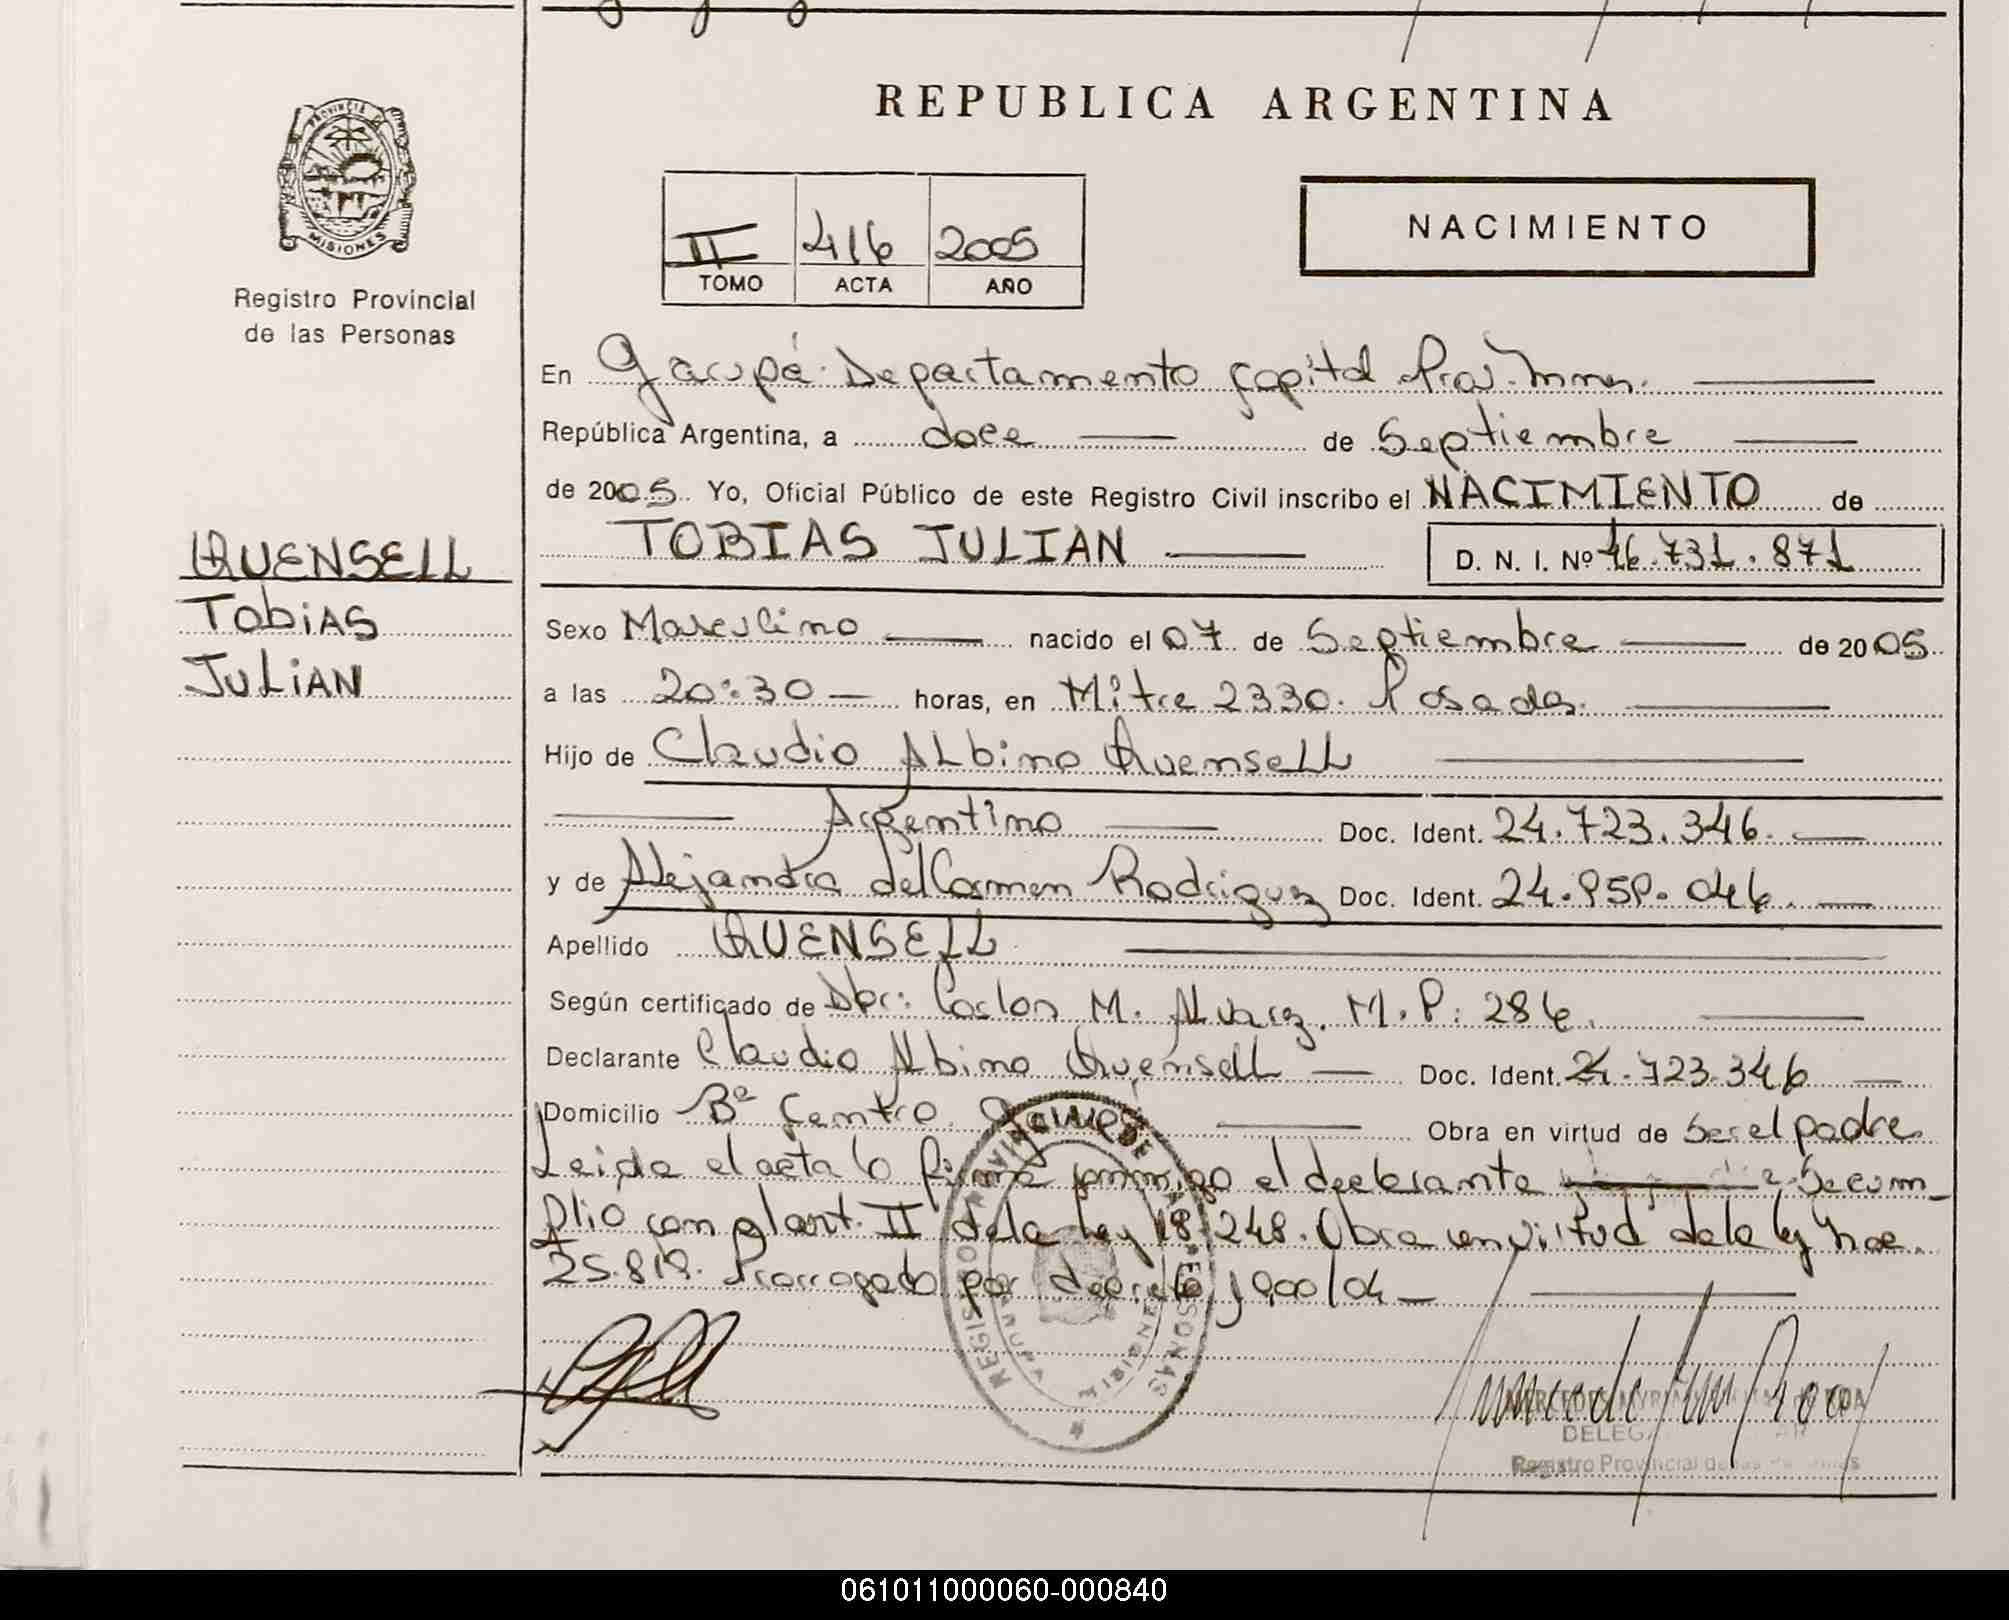 REPUBLICA ARGENTINA
PROVINCIA DE
MISIONES
Registro Provincial
de las Personas
II 416 2005
TOMO ACTA AÑO
NACIMIENTO
En Garupá Departamento Capital Prov. Mnes.
República Argentina, a doce de Septiembre
de 2005 Yo, Oficial Público de este Registro Civil inscribo el NACIMIENTO de
TOBIAS JULIAN D. N. I. Nº 46.731.871
QUENSELL
Tobias
Julian
Sexo Masculino nacido el 07 de Septiembre de 2005
a las 20:30 horas, en Mitre 2330. Posadas.
Hijo de Claudio Albino Quensell
Argentino Doc. Ident. 24.723.346.
y de Alejandra del Carmen Rodriguez Doc. Ident. 24. 046.
Apellido QUENSELL
Según certificado de Dr: Carlos M. Alvarez. M.P: 286.
Declarante Claudio Albino Quensell Doc. Ident. 24.723.346
Domicilio Bº Centro Garupá Obra en virtud de ser el padre
Leida el acta la firma conmigo el declarante Se cum_
plio con el art. II de la ley 18.248. Obra en virtud de la ley
25.819. Prorrogado por decreto
REGISTRO DE PERSONAS
DELEGA
Registro Provincial de las Personas
061011000060-000840